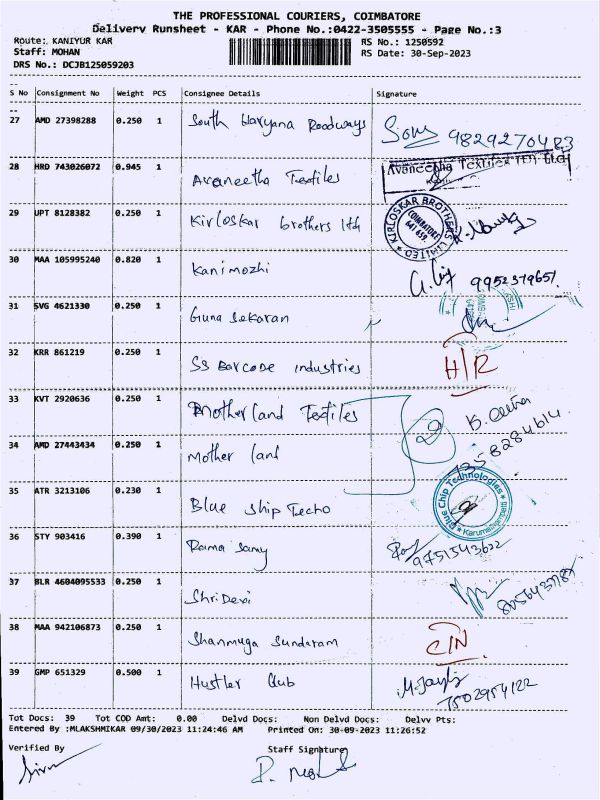 THE PROFESSIONAL COURIERS, COIMBATORE
Delivery Runsheet - KAR - Phone No.:0422-3505555 - Page No.:3
Route: KANIYUR KAR RS No.: 1250592
Staff: MOHAN RS Date: 30-Sep-2023
DRS No.: DCJB125059203
S No Consignment No Weight PCS Consignee Details Signature
27 AMD 27398288 0.250 1 South Haryana Roadways 9829270483
28 HRD 743026072 0.945 1 Avaneetha Textiles Avaneetha Textiles (P) Ltd
29 UPT 8128382 0.250 1 Kirloskar brothers lth KIRLOSKAR BROTHERS LIMITED COIMBATORE 641 659.
30 MAA 105995240 0.820 1 Kanimozhi 9952379651.
31 SVG 4621330 0.250 1 Guna Sekaran
32 KRR 861219 0.250 1 SS Barcode industries H/R
33 KVT 2920636 0.250 1 Motherland Textiles
34 AMD 27443434 0.250 1 Mother land 7358284614
35 ATR 3213106 0.230 1 Blue ship Techo Blue Chip Technologies Karumathampatti
36 STY 903416 0.390 1 Rama Samy 9751543622
37 BLR 4604095533 0.250 1 Shri Devi
38 MAA 942106873 0.250 1 Shanmuga Sundaram C/N
39 GMP 651329 0.500 1 Hustler Club 7502954122
Tot Docs: 39 Tot COD Amt: 0.00 Delvd Docs: Non Delvd Docs: Delvv Pts:
Entered By :MLAKSHMIKAR 09/30/2023 11:24:46 AM Printed On: 30-09-2023 11:26:52
Verified By Staff Signature